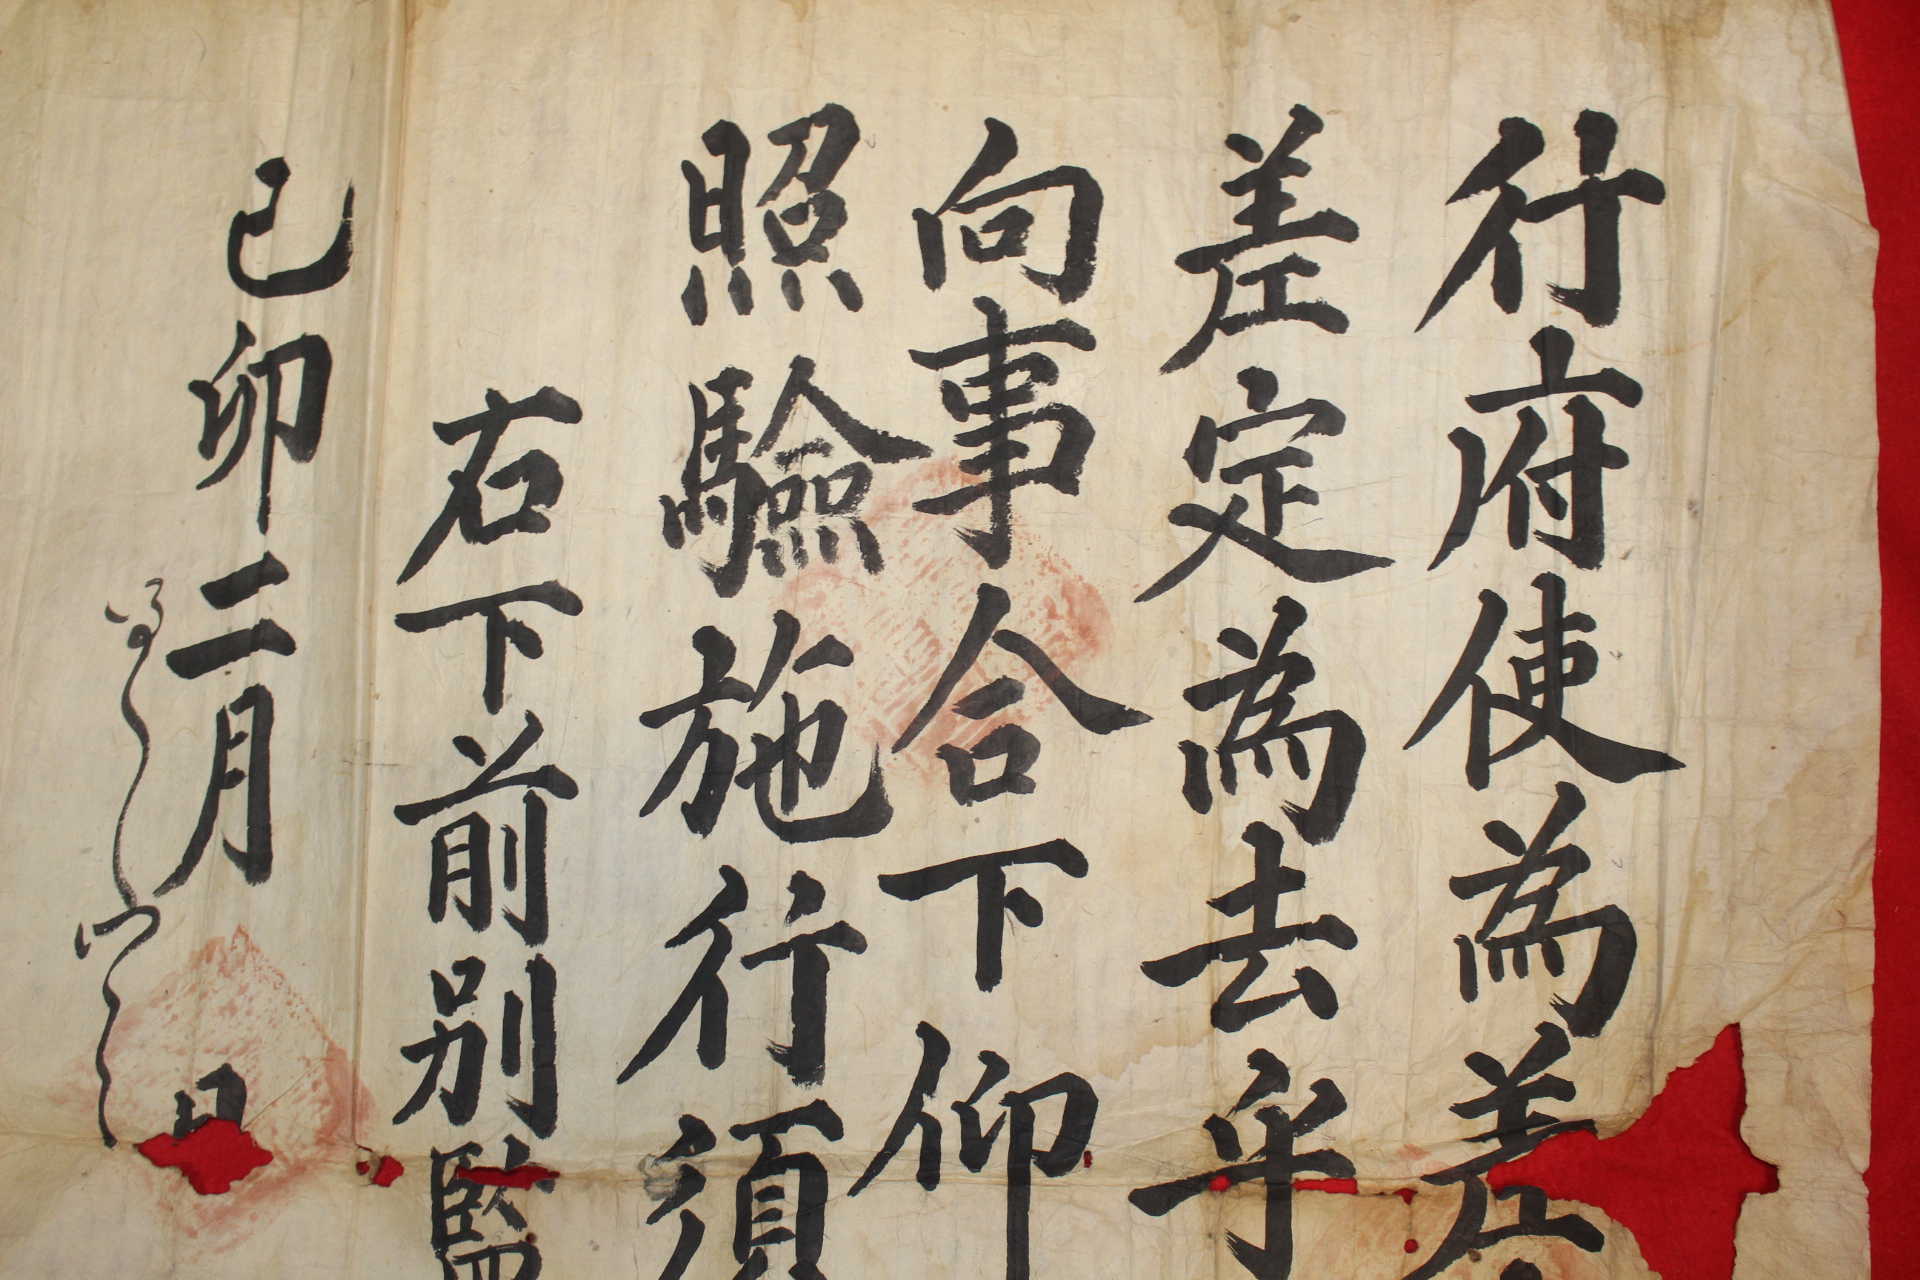 行府使為差
差定為去乎
向事合下仰
照驗施行須
右下前別監
己卯二月日